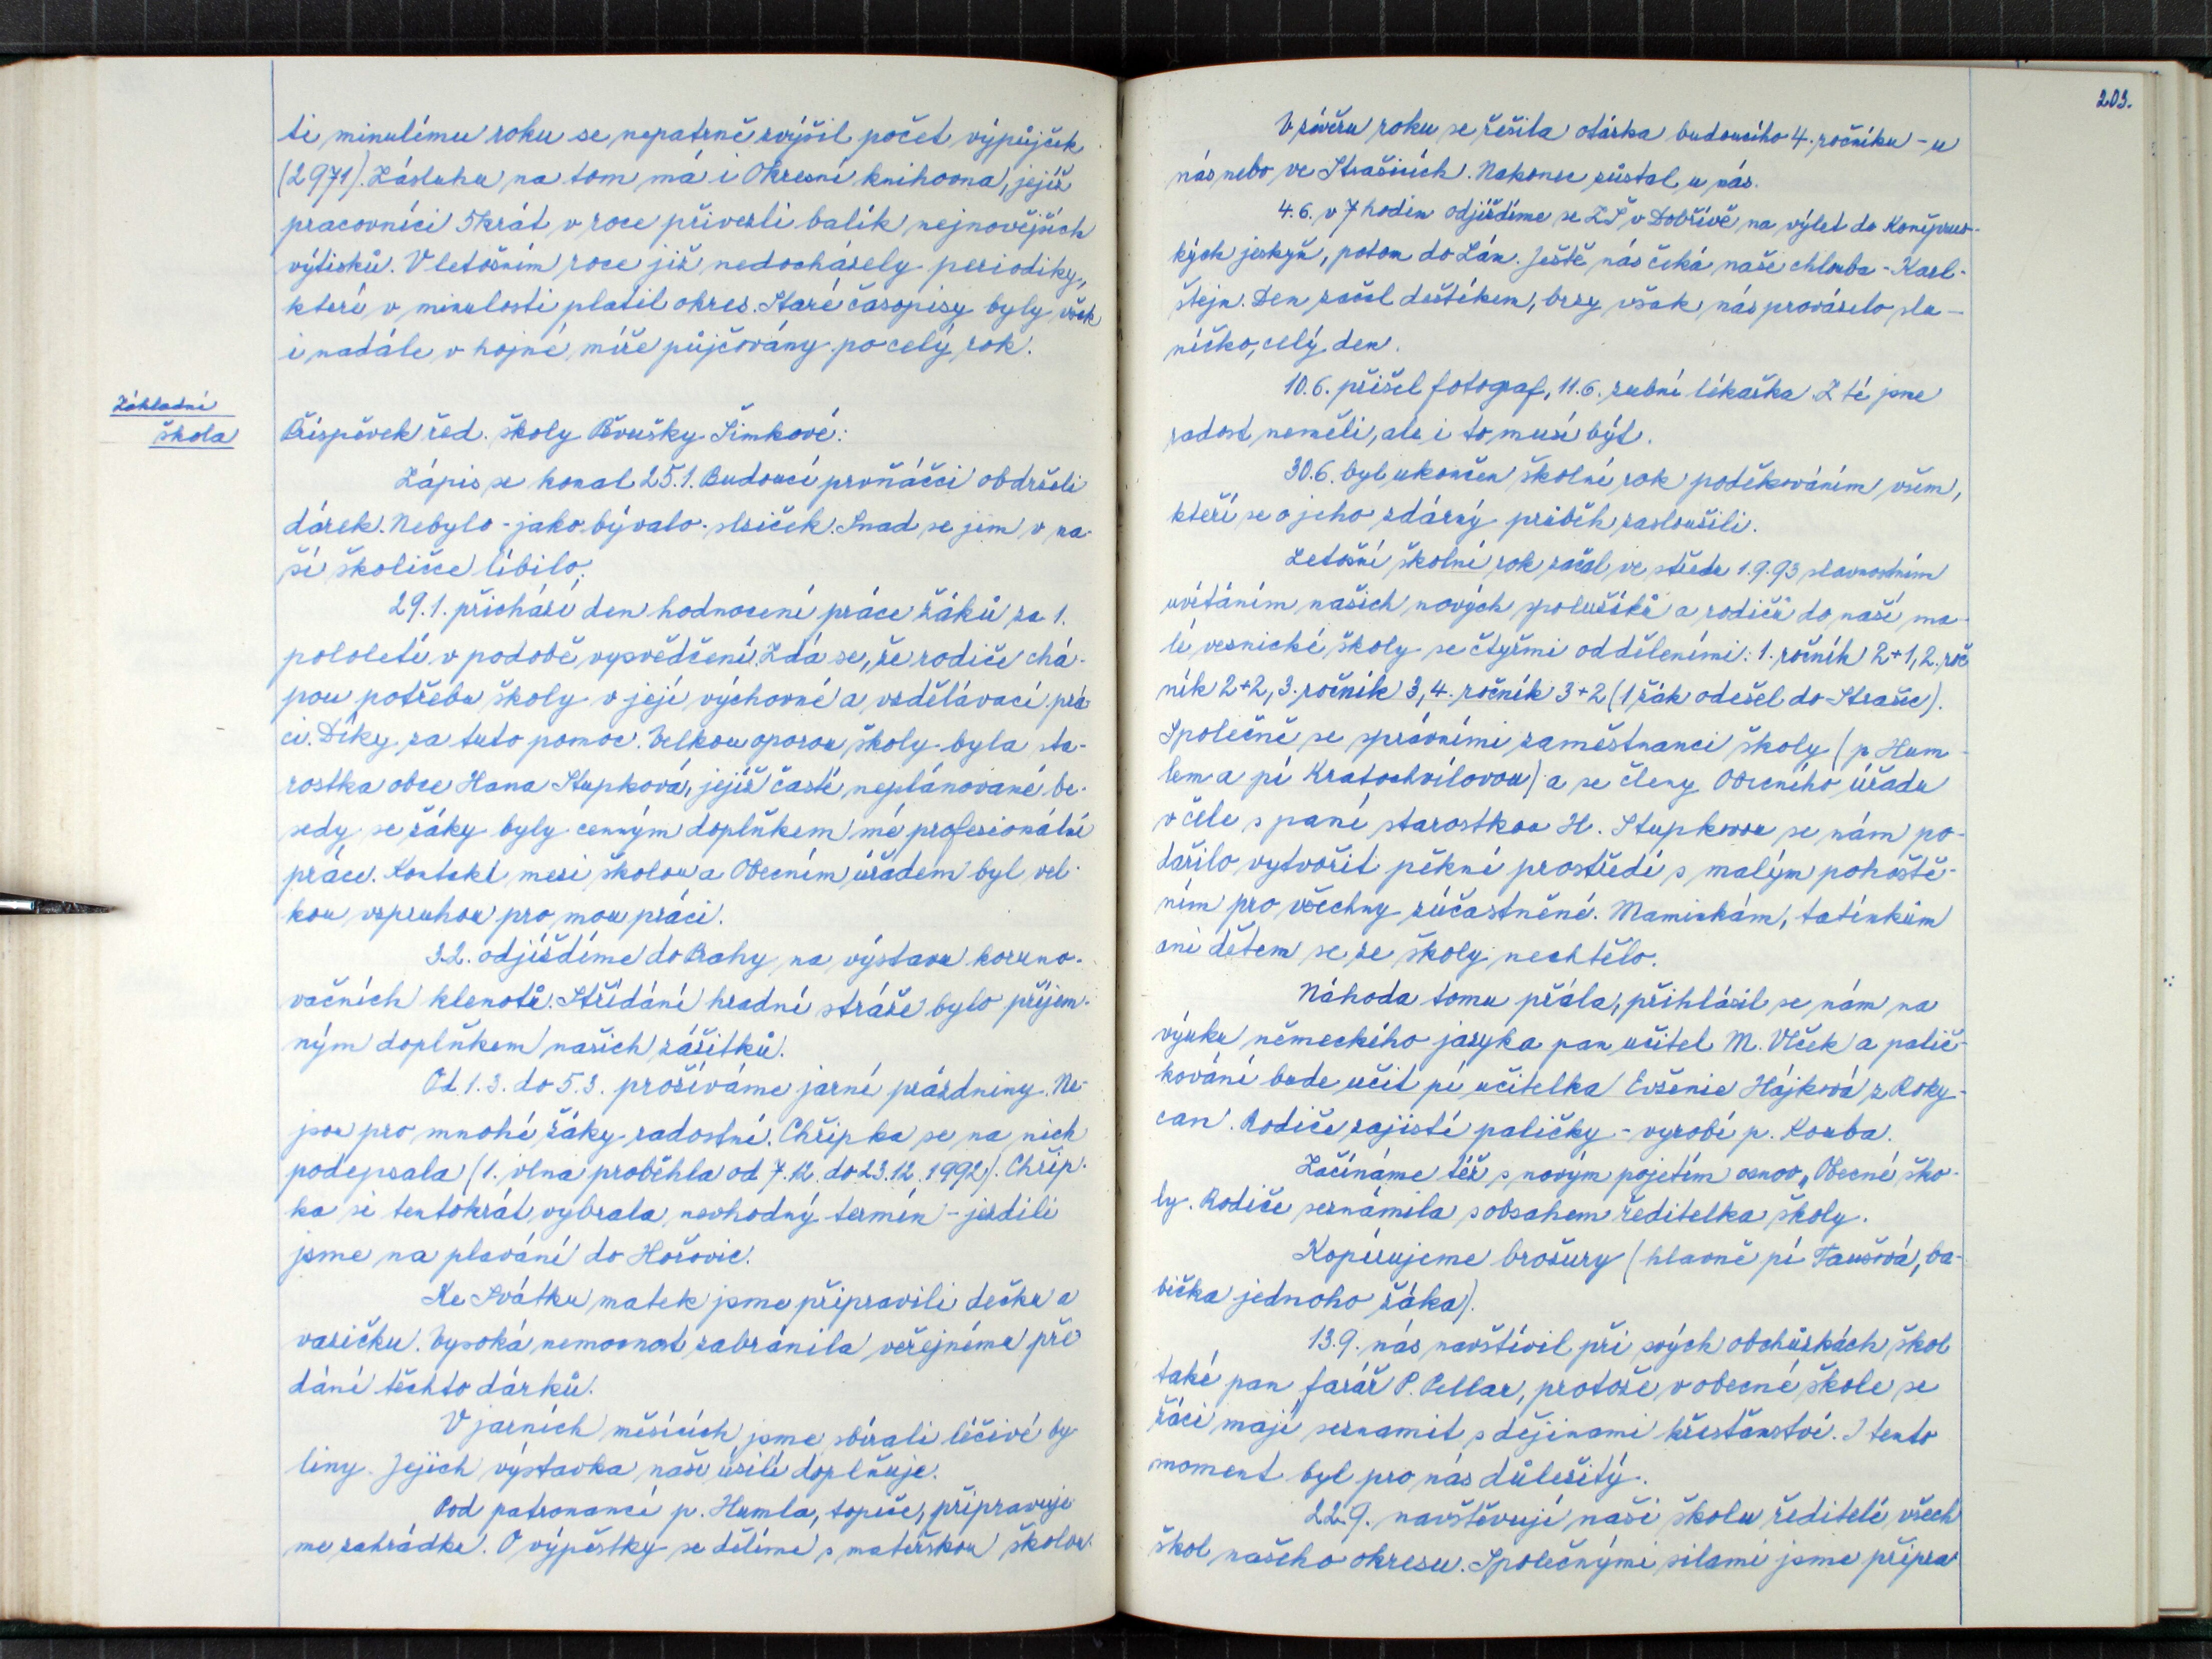 ti minulému roku se nepatrně zvýšil počet výpůjček
(2971). Zásluhu na tom má i Okresní knihovna, jejíž
pracovníci 5krát v roce přivezli balík nejnovějších
výtisků. V letošním roce již nedocházely periodiky,
které v minulosti platil okres. Staré časopisy byly však
i nadále v hojné míře půjčovány po celý rok.
Základní
škola
Příspěvek řed. školy Věrušky Šimkové:
Zápis se konal 25.1. Budoucí prvňáčci obdrželi
dárek. Nebylo - jako bývalo - slziček. Snad se jim v na-
ší školičce líbilo.
29.1. přichází den hodnocení práce žáků za 1.
pololetí v podobě vysvědčení. Zdá se, že rodiče chá-
pou potřebu školy v její výchovné a vzdělávací prá
ci. Díky za tuto pomoc. Velkou oporou školy byla sta-
rostka obce Hana Stupková, jejíž časté neplánované be-
sedy se žáky byly cenným doplňkem mé profesionální
práce. Kontakt mezi školou a Obecním úřadem byl vel-
kou vzpruhou pro mou práci.
3.2. odjíždíme do Prahy na výstavu koruno-
vačních klenotů. Střídání hradní stráže bylo příjem-
ným doplňkem našich zážitků.
Od 1.3. do 5.3. prožíváme jarní prázdniny. Ne-
jsou pro mnohé žáky radostné. Chřipka se na nich
podepsala (1. vlna proběhla od 7.12. do 23.12.1992). Chřip-
ka si tentokrát vybrala nevhodný termín - jezdili
jsme na plavání do Hořovic.
Ke Svátku matek jsme připravili dečku a
vazičku. Vysoká nemocnost zabránila veřejnému pře
dání těchto dárků.
V jarních měsících jsme sbírali léčivé by
liny. Jejich výstavka naše úsilí doplňuje.
Pod patronancí p. Humla, topiče, připravuje
me zahrádku. O výpěstky se dělíme s mateřskou školou.
203.
V závěru roku se řešila otázka budoucího 4. ročníku - u
nás nebo ve Strašicích. Nakonec zůstal u nás.
4.6. v 7 hodin odjíždíme se ZŠ v Dobřívě na výlet do Koněprus-
kých jeskyň, potom do Lán. Ještě nás čeká naše chlouba - Karl-
štejn. Den začal deštíkem, brzy však nás provázelo slu-
níčko, celý den.
10.6. přišel fotograf, 11.6. zubní lékařka. Z té jsme
radost neměli, ale i to musí být.
30.6. byl ukončen školní rok poděkováním všem,
kteří se o jeho zdárný průběh zasloužili.
Letošní školní rok začal ve středu 1.9.93 slavnostním
uvítáním našich nových spolužáků a rodičů do naší ma-
lé vesnické školy se čtyřmi odděleními: 1. ročník 2+1, 2. roč
ník 2+2, 3. ročník 3, 4. ročník 3+2 (1 žák odešel do Strašic).
Společně se správními zaměstnanci školy (p. Hum-
lem a pí Kratochvílovou) a se členy Obecního úřadu
v čele s paní starostkou H. Stupkovou se nám po-
dařilo vytvořit pěkné prostředí s malým pohoště-
ním pro všechny zúčastněné. Maminkám, tatínkům
ani dětem se ze školy nechtělo.
Náhoda tomu přála, přihlásil se nám na
výuku německého jazyka pan učitel M. Vlček a palič-
kování bude učit pí učitelka Evženie Hájková z Roky-
can. Rodiče zajistí paličky - vyrobí p. Kouba.
Začínáme též s novým pojetím osnov „Obecné ško-
ly. Rodiče seznámila s obsahem ředitelka školy.
Kopírujeme brožury (hlavně pí Taušová, ba-
bička jednoho žáka).
13.9. nás navštívil při svých obchůzkách škol
také pan farář P. Cellar, protože v obecné škole se
žáci mají seznámit s dějinami křesťanství. I tento
moment byl pro nás důležitý.
22.9. navštěvují naši školu ředitelé všech
škol našeho okresu. Společnými silami jsme připra